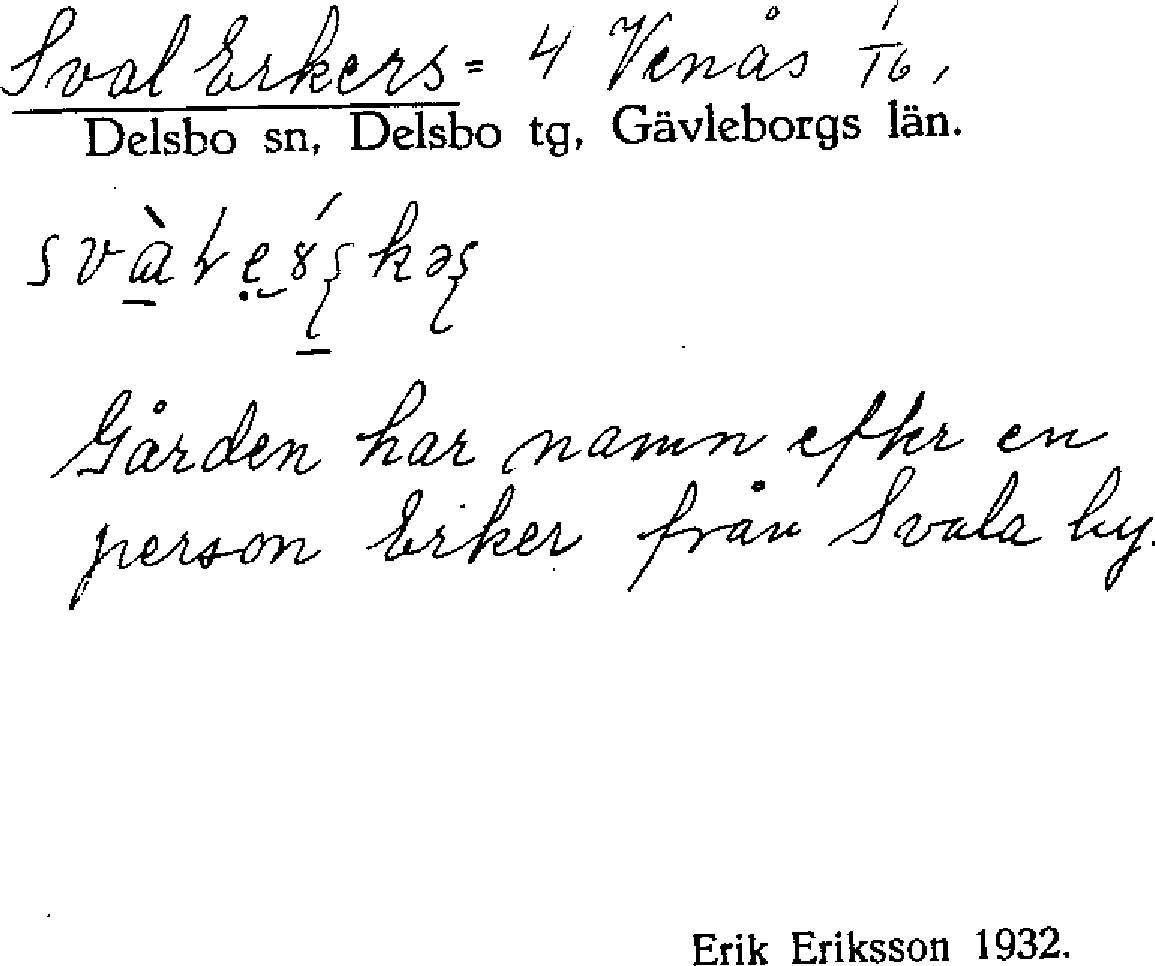 Sval Erkers = 4 Venås 1/16,
Delsbo sn, Delsbo tg, Gävleborgs län.
Gården har namn efter en
person Erker från Svala by.
Erik Eriksson 1932.